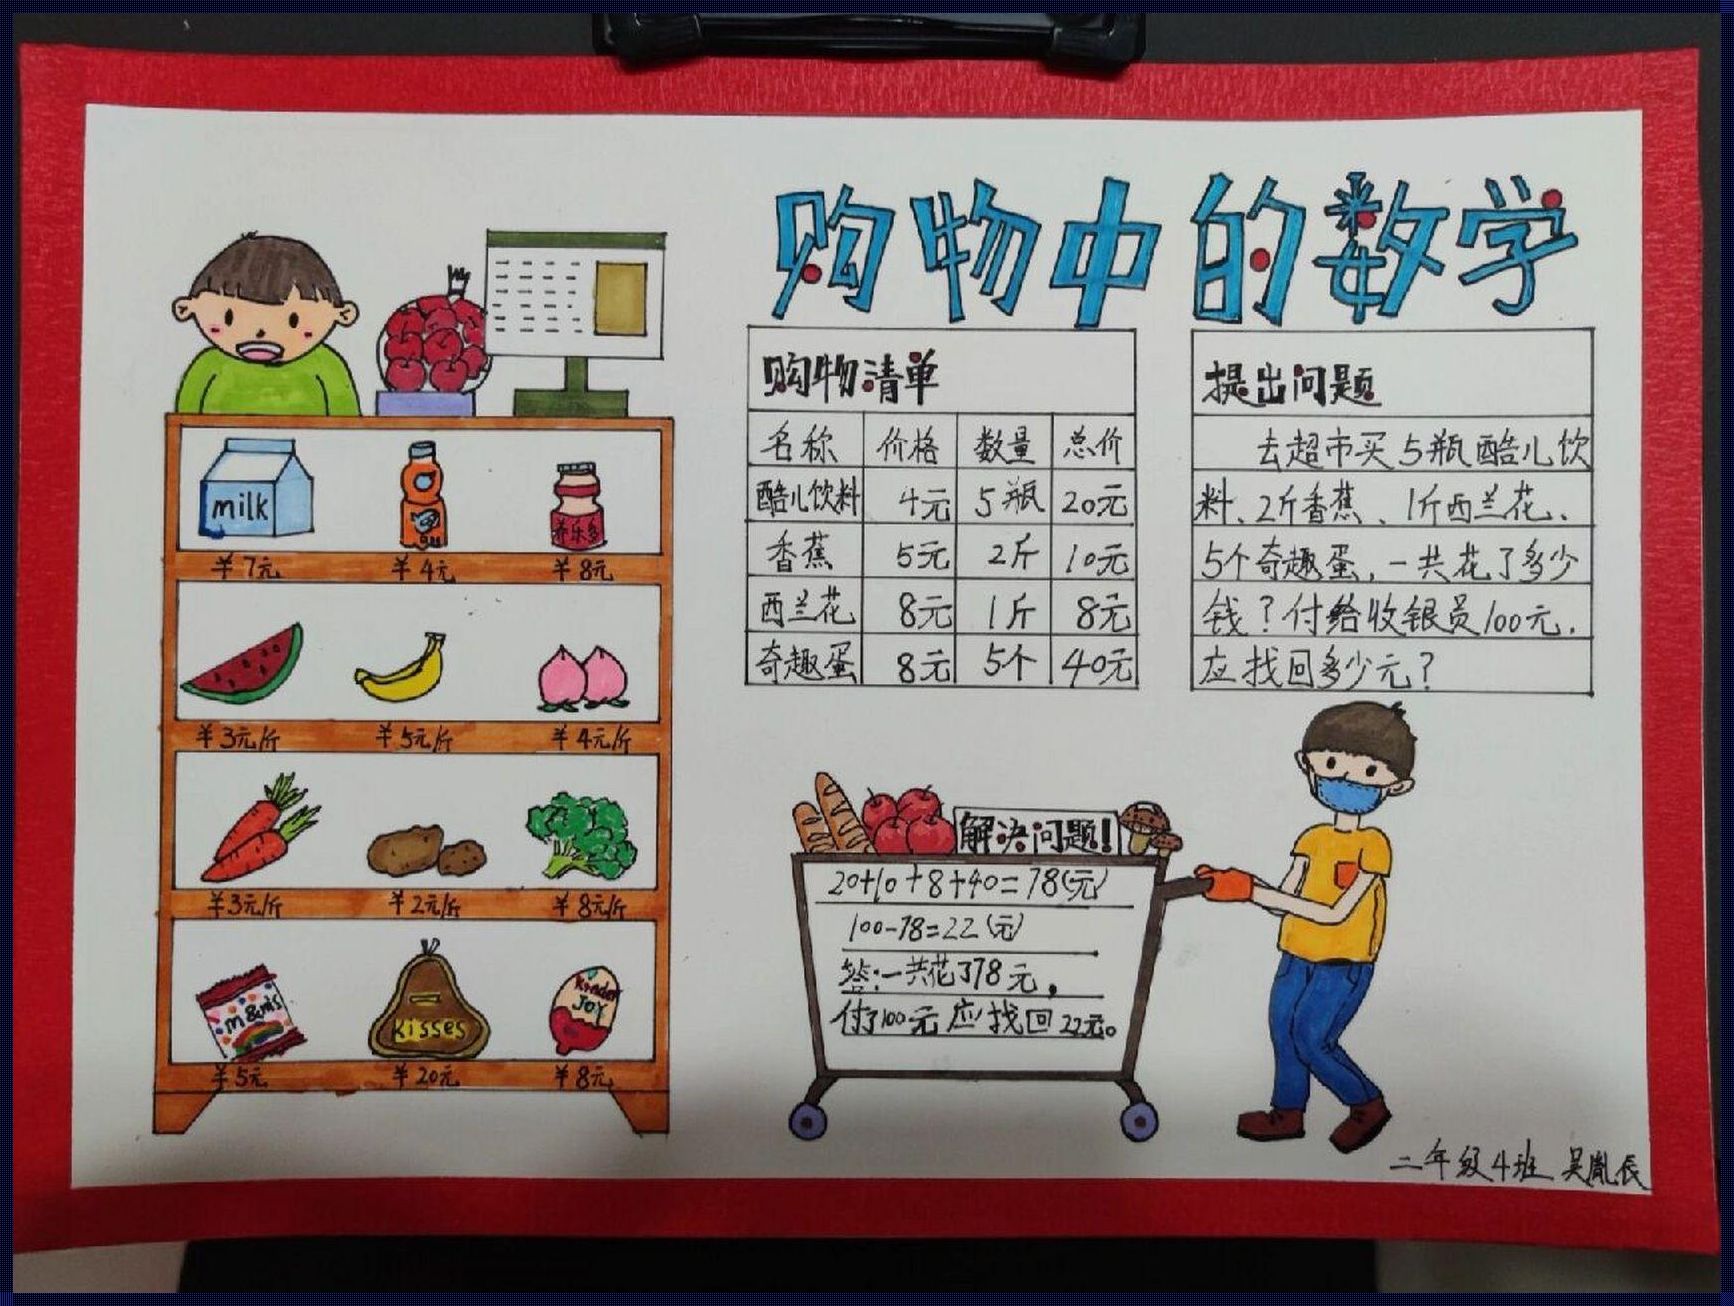 购物中的数学
milk
养乐多
¥7元 ¥4元 ¥8元
¥3元/斤 ¥5元/斤 ¥4元/斤
¥3元/斤 ¥2元/斤 ¥8元/斤
m&m's
kisses
kinder
JOY
¥5元 ¥20元 ¥8元
购物清单
名称 价格 数量 总价
酷儿饮料 4元 5瓶 20元
香蕉 5元 2斤 10元
西兰花 8元 1斤 8元
奇趣蛋 8元 5个 40元
提出问题
去超市买5瓶酷儿饮
料、2斤香蕉、1斤西兰花、
5个奇趣蛋,一共花了多少
钱?付给收银员100元,
应找回多少元?
解决问题!
20+10+8+40=78(元)
100-78=22(元)
答:一共花了78元,
付了100元应找回22元。
二年级4班 吴胤辰